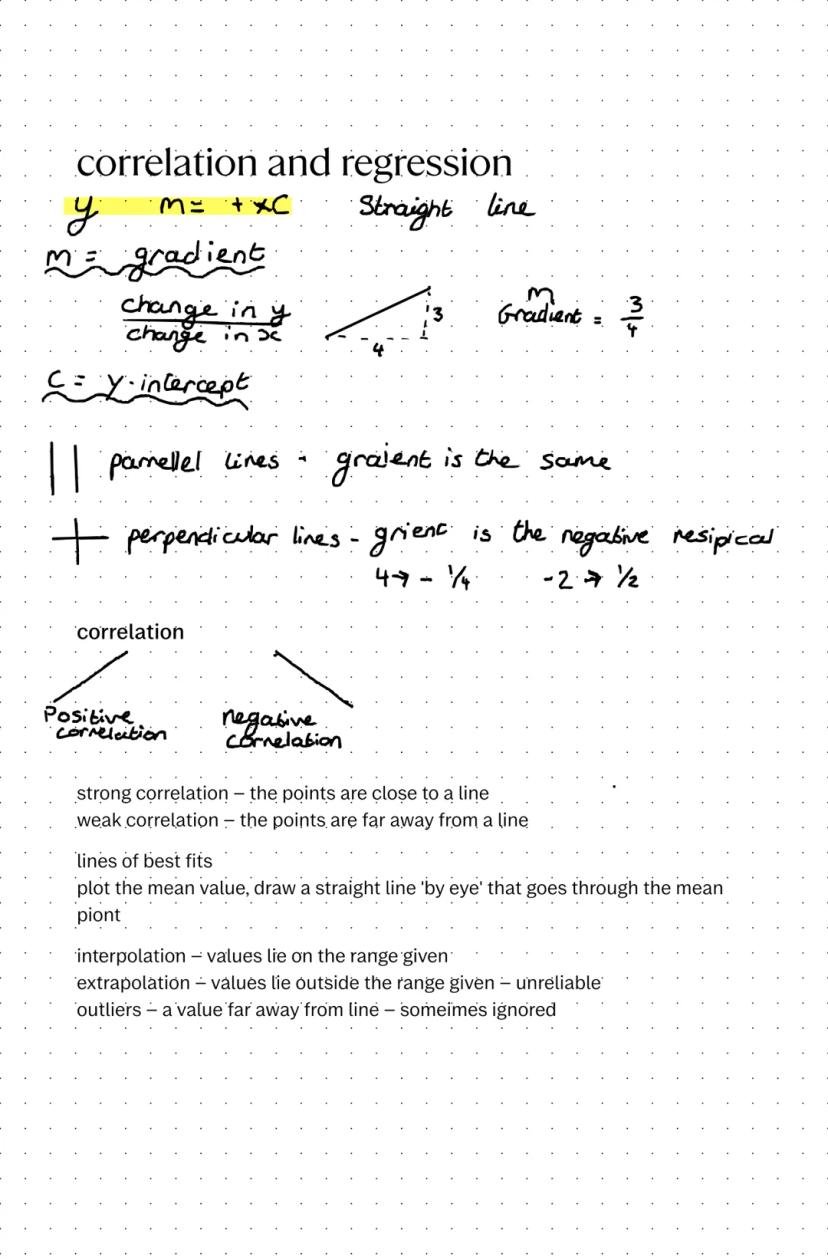 correlation and regression
y m= + xC Straight line
m = gradient
change in y
change in x
3
4
m
Gradient = 3/4
C = y-intercept
parrellel lines - graient is the same
perpendicular lines - grient is the negative resipical
4→ - 1/4 -2 → 1/2
correlation
Positive correlation
negative correlation
strong correlation – the points are close to a line
weak correlation – the points are far away from a line
lines of best fits
plot the mean value, draw a straight line 'by eye' that goes through the mean
piont
interpolation – values lie on the range given
extrapolation – values lie outside the range given – unreliable
outliers – a value far away from line – someimes ignored